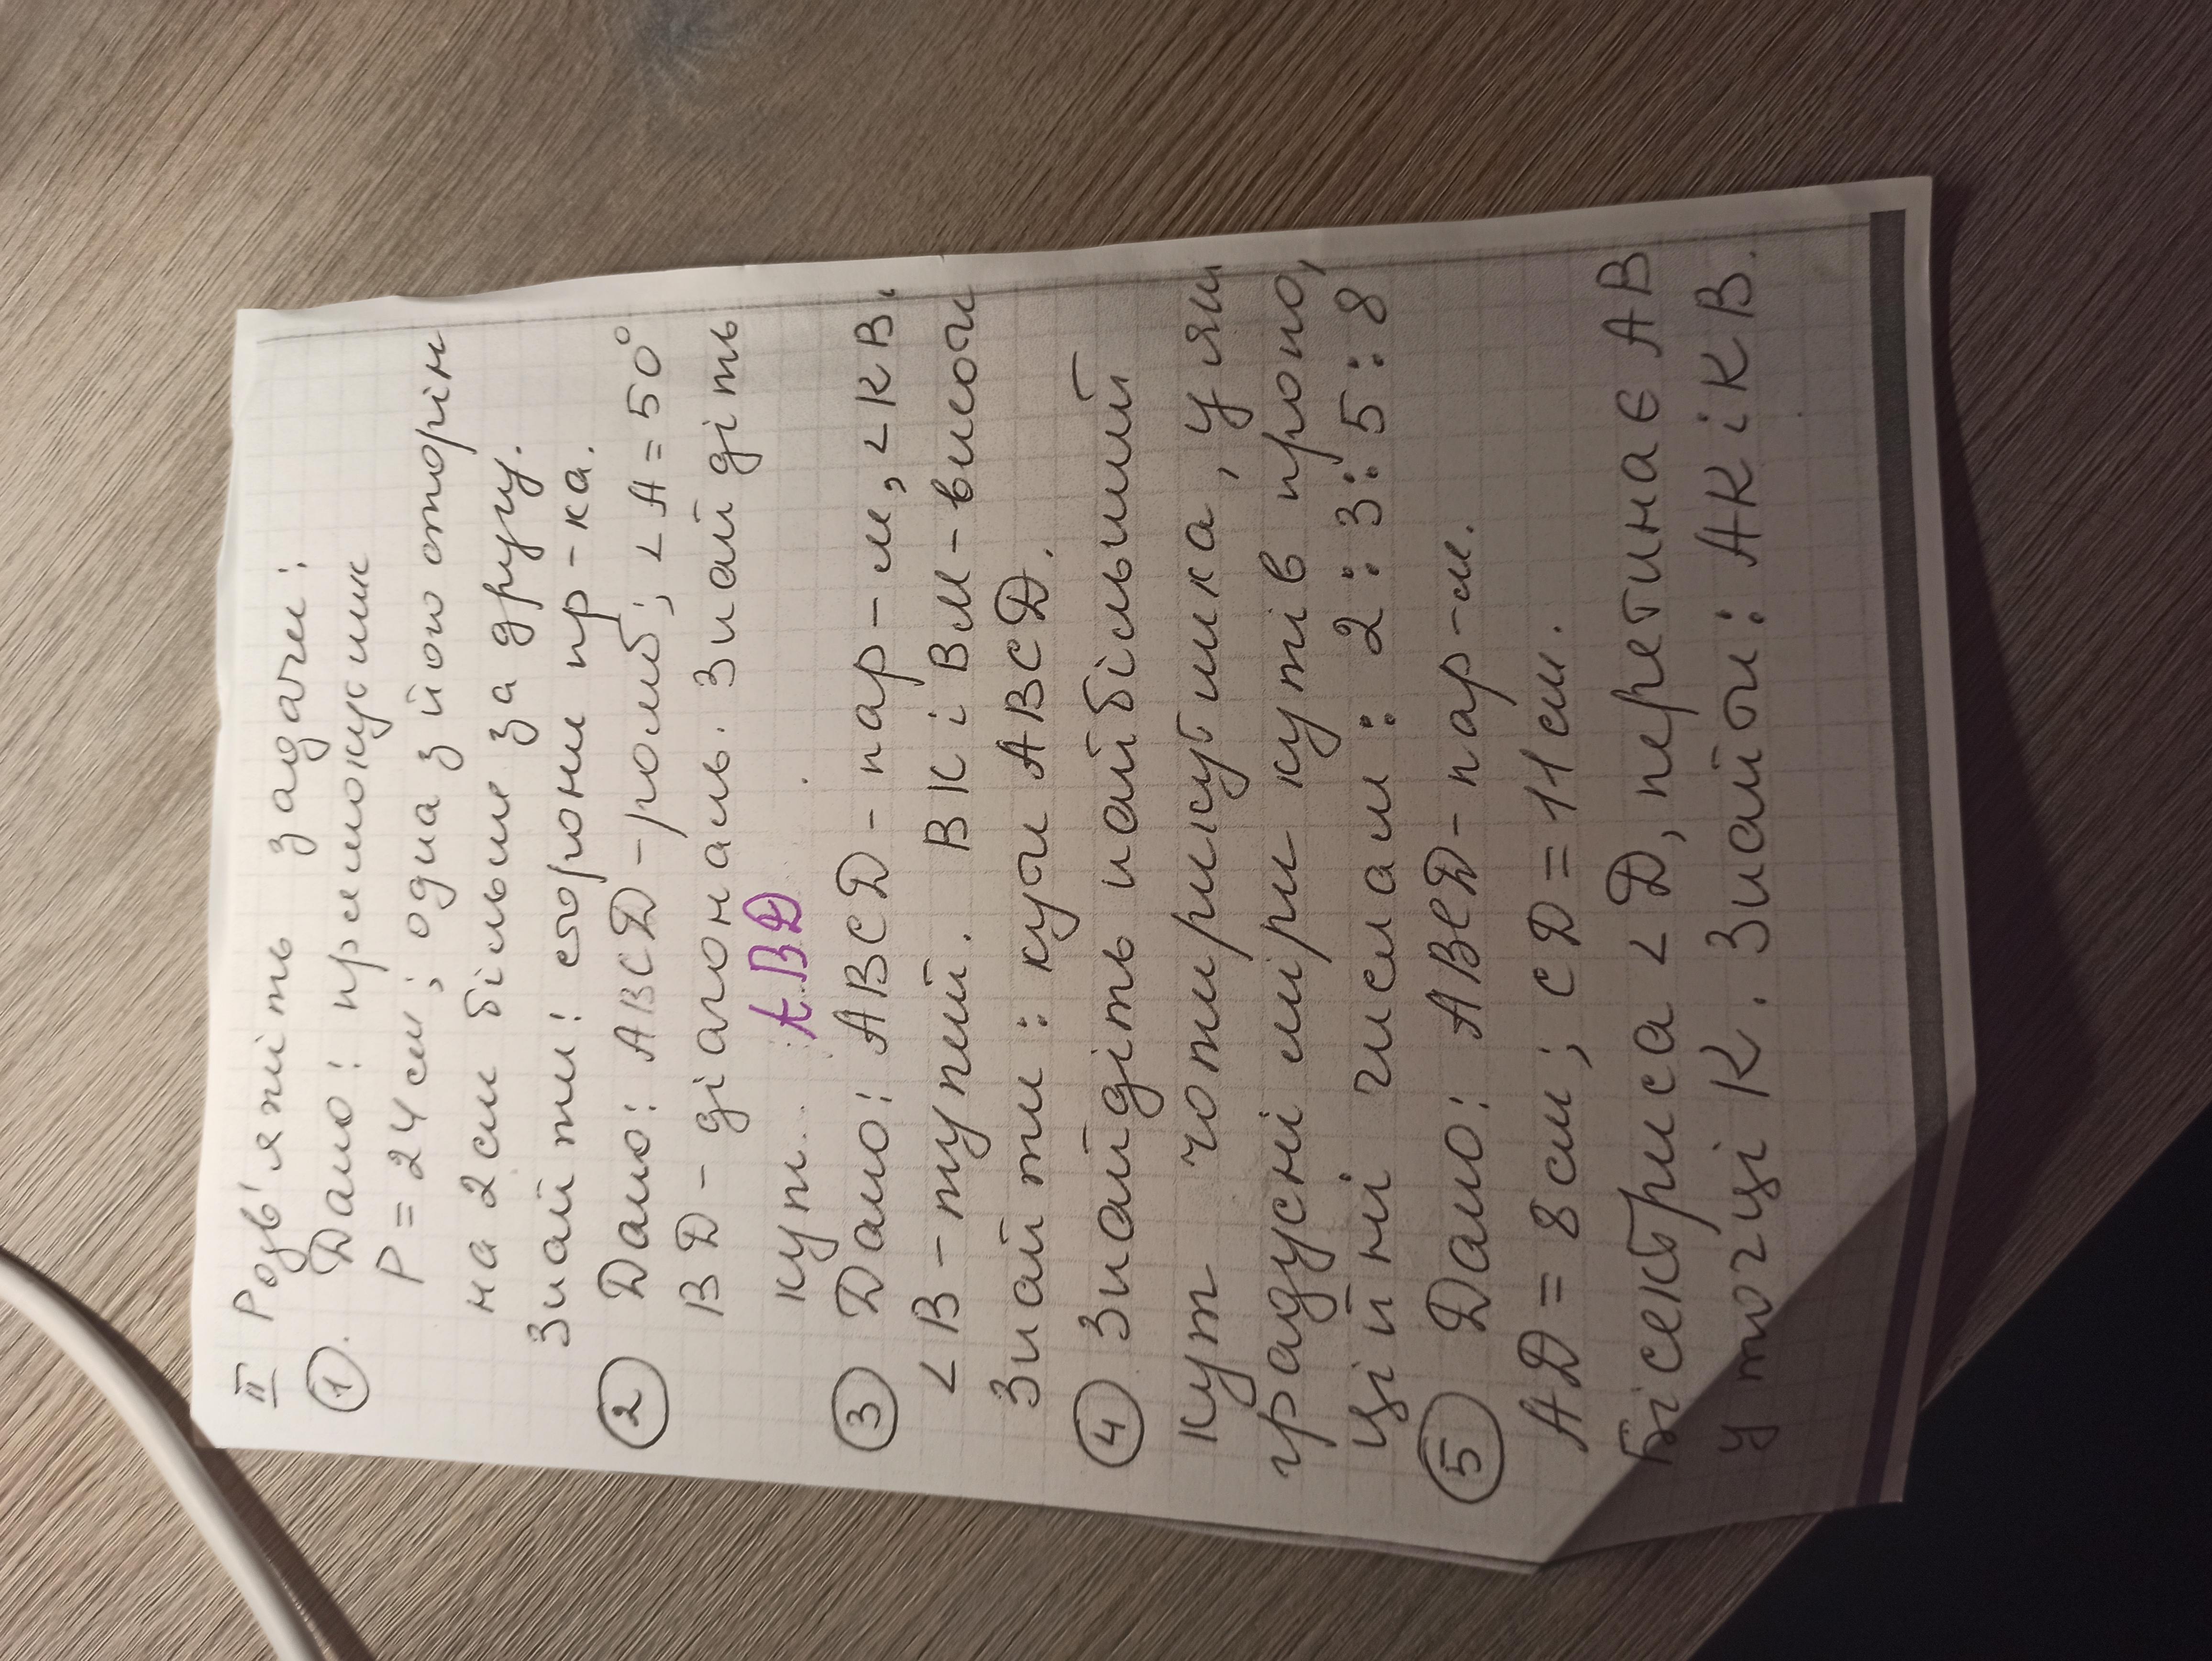 II Розв'яжіть задачі:
① . Дано: прямокутник
P = 24 см; одна з його сторін
на 2 см більше за другу.
Знайти: сторони пр-ка.
② Дано: ABCD - ромб; ∠A = 50°
BD - діагональ. Знайдіть
кут .. ABD
③ Дано: ABCD - пар-м, ∠KB
∠B - тупий. BK і BM - висоти
Знайти: кути ABCD.
④ Знайдіть найбільший
кут чотирикутника, у яки
градусні міри кутів пропо,
ційні числам: 2:3:5:8
⑤ Дано: ABCD - пар-м.
AD = 8 см; CD = 11 см.
Бісектриса ∠D, перетинає AB
у точці K. Знайти: AK і KB.